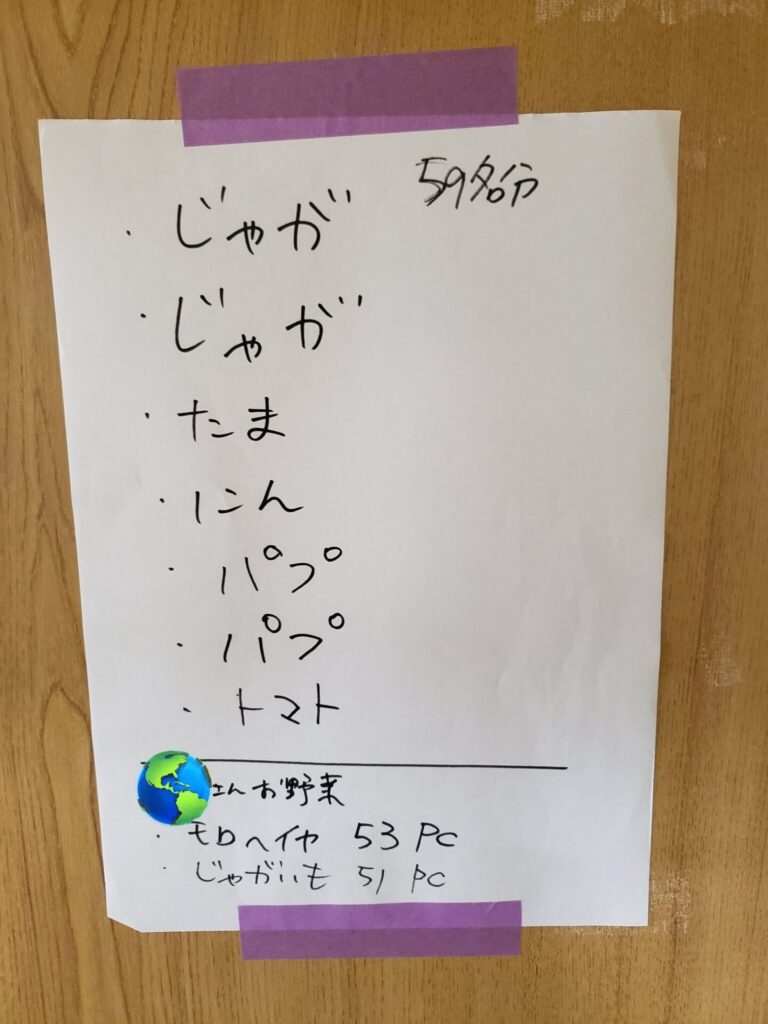 59名分
・じゃが
・じゃが
・たま
・にん
・パプ
・パプ
・トマト
さんお野菜
・モロヘイヤ 53 PC
・じゃがいも 51 PC